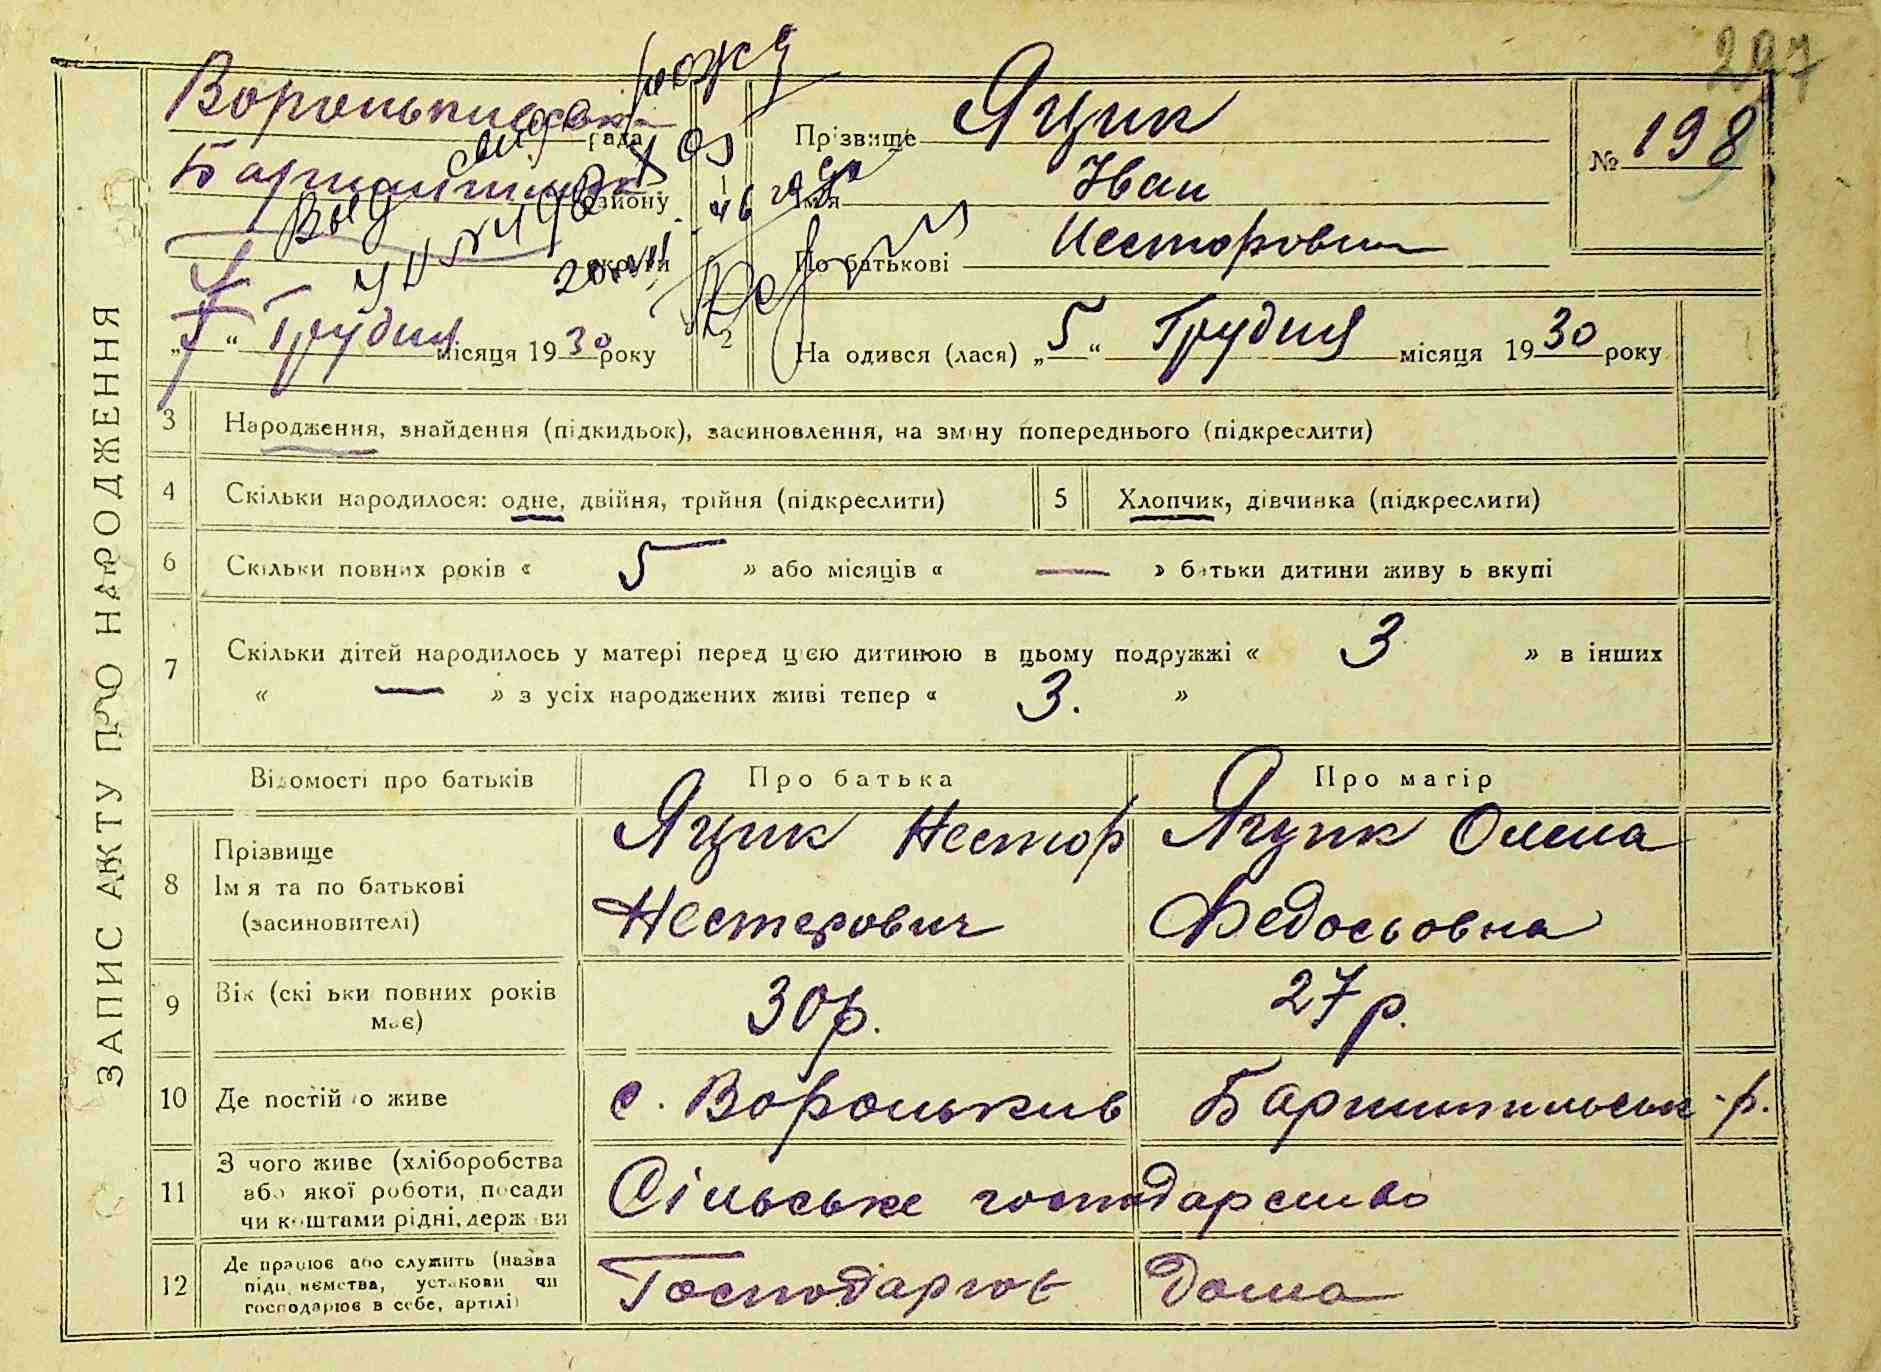 297
ЗАПИС АКТУ ПРО НАРОДЖЕННЯ
Вороньківська рада
району
округи
„7“ Грудня місяця 1930 року
Прізвище Яцик
№ 198
Ім'я Іван
По батькові Несторович
2 На одився (лася) „5“ Грудня місяця 1930 року
3 Народження, знайдення (підкидьок), засиновлення, на зміну попереднього (підкреслити)
4 Скільки народилося: одне, двійня, трійня (підкреслити)
5 Хлопчик, дівчинка (підкреслити)
6 Скільки повних років « 5 » або місяців « — » батьки дитини живу ь вкупі
7 Скільки дітей народилось у матері перед цією дитиною в цьому подружжі « 3 » в інших
« — » з усіх народжених живі тепер « 3. »
Відомості про батьків Про батька Про матір
8 Прізвище
Імя та по батькові
(засиновителі)
Яцик Нестор
Нестерович
Яцик Олена
Федосьовна
9 Вік (скі ьки повних років
має)
30 р.
27 р.
10 Де постійно живе с. Вороньків Баришпільськ - р.
11 З чого живе (хліборобства
або якої роботи, посади
чи коштами рідні, держави
Сільське господарство
12 Де працює або служить (назва
підприємства, установи чи
господарює в себе, артілі)
Господарює Дома